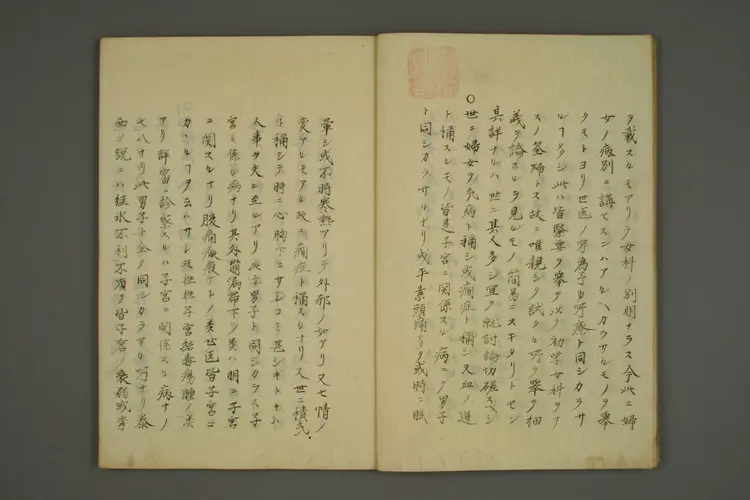 ヲ載スルモアリテ女科ノ別明ナラス今此ニ婦
女ノ病別ニ講セスンハアルヘカラサルモノヲ挙
クモトヨリ世医ノ所為予カ所療ト同シカラサ
ルコ多シ此ハ皆緊要ヲ挙ク以テ初学女科ヲナ
スノ筌蹄トス故ニ唯親シク試クル所ヲ挙ク細
義ヲ論スルヲ見ルモノ簡易ニスキタリトセン
具詳ナルハ世ニ其人多シ宜ク就討論切磋スヘシ
○世ニ婦女ヲ気病ト称シ或癇症ト称シ又血ノ道
ト称スルモノ皆是子宮ニ関係スル病ニテ男子
ト同シカラサルナリ或平素頭痛シ或時ニ眩
暈シ或不時寒熱アリテ外邪ノ如アリ又七情ノ
変アルモアル故ニ癇症ト称スルナリ又世ニ積気
ト称シテ時ニ心胸下ニサシコミ甚シキトキハ
人事ヲ失ニ至ルアリ此亦男子ト同シカラス子
宮ニ係ル病ナリ其外崩漏帯下ノ類ハ明ニ子宮
ニ関スルナリ腹痛癥瘕ナトノ類世医皆子宮ニ
カヽルコヲ云ハサレ𪜈往往子宮結毒瘍腫ノ類
アリ詳審ニ診察スルハ子宮ニ関係スル病ナノ
七八ナリ此男子ト全ク同シカラサル所ナリ泰
西ノ説ニハ経水不利不順ヲ皆子宮ノ衰弱或ハ